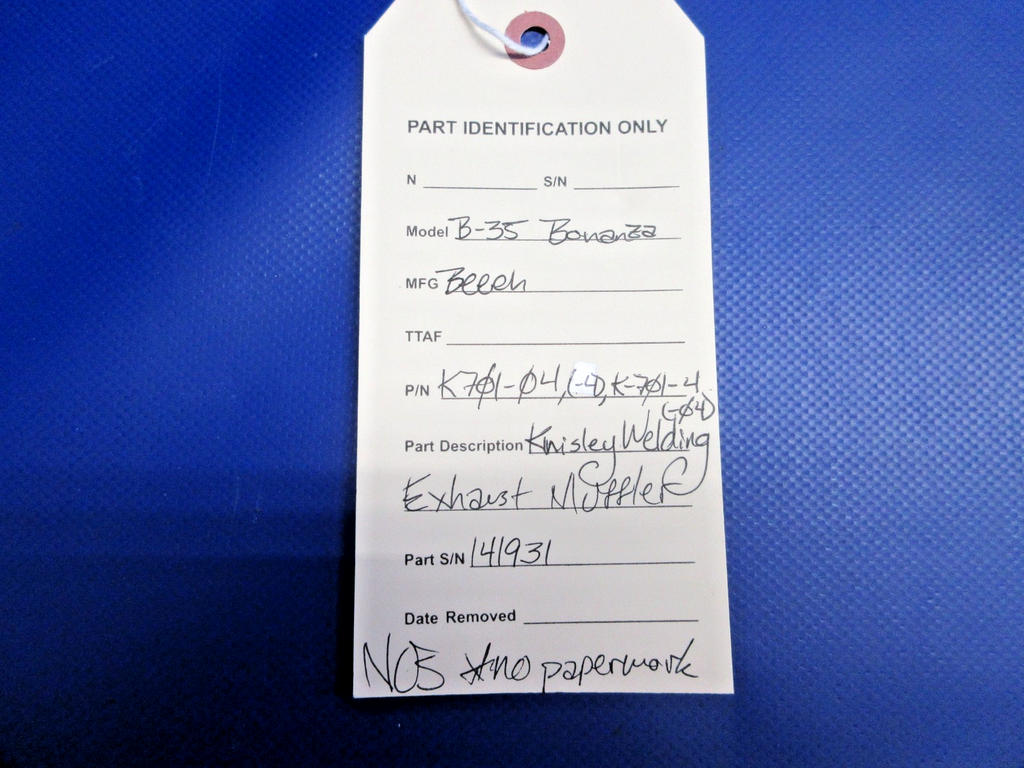 PART IDENTIFICATION ONLY
N S/N
Model B-35 Bonanza
MFG Beech
TTAF
P/N K701-04, (-4), K-701-4
(-04)
Part Description Knisley Welding
Exhaust Muffler
Part S/N 141931
Date Removed
NOS *no paperwork